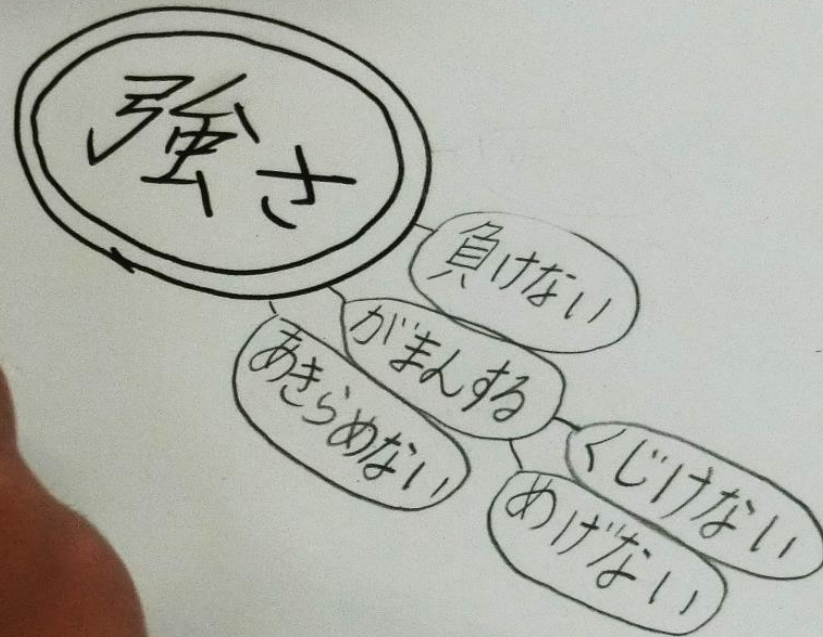 強さ
負けない
がまんする
あきらめない
くじけない
めげない